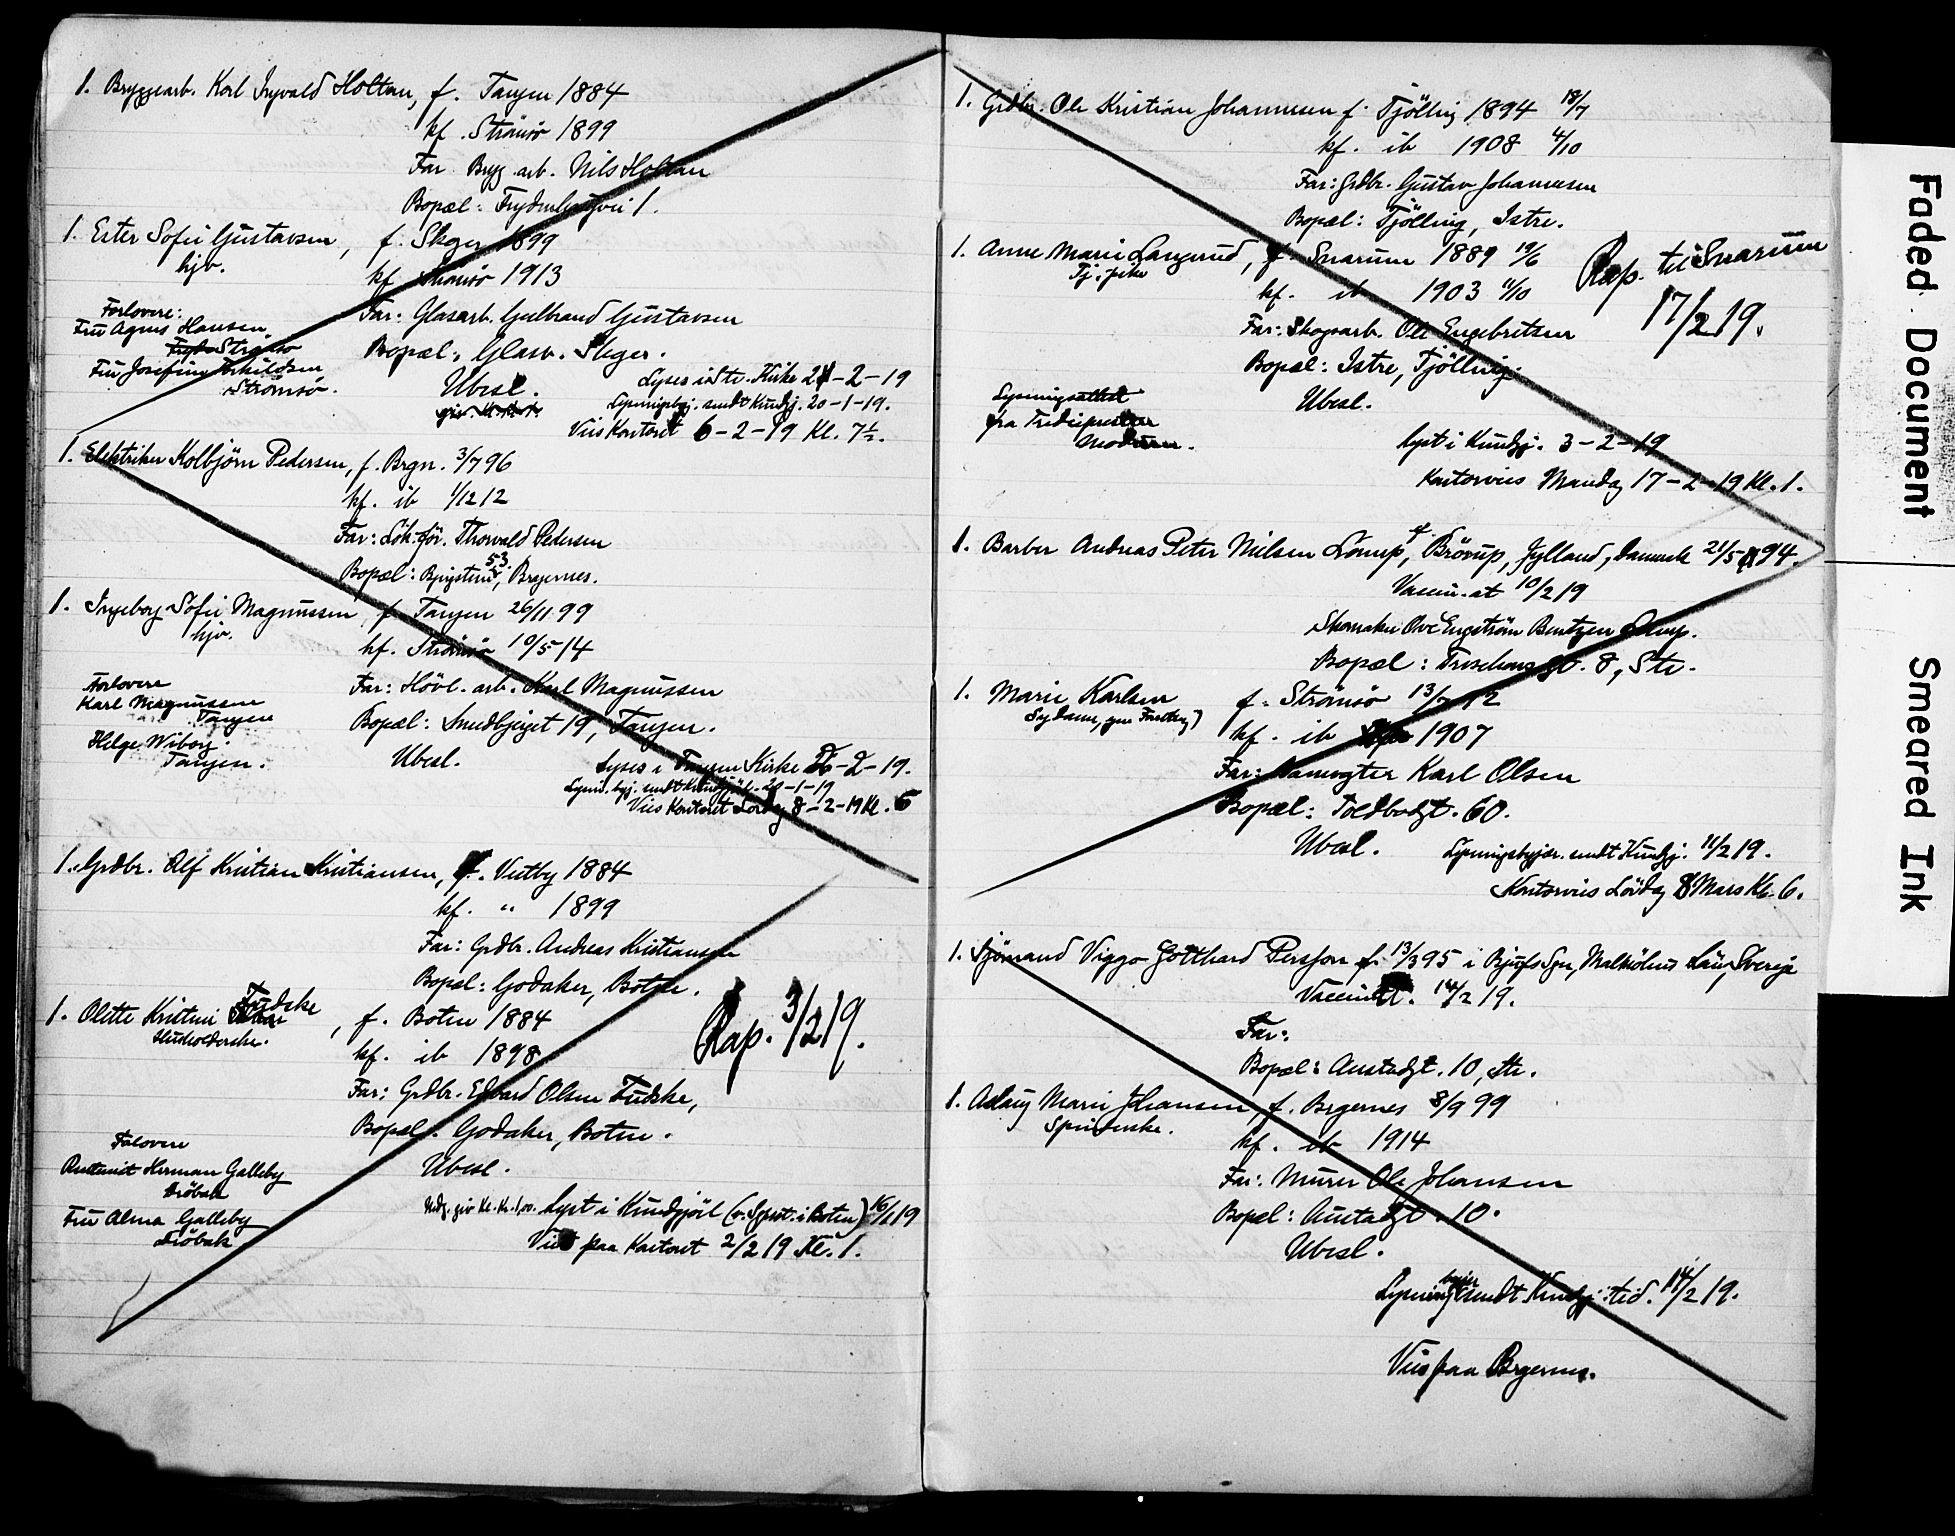 1. Bryggearb. Karl Ingvald Holtan, f. Tangen 1884
kf. Strömsö 1899
Far Bryg. arb. Nils Holtan
Bopæl: Frydenbergvei 1.
1. Ester Sofie Gustavsen, f. Skger 1899
hjv.
kf. Strömsö 1913
Far: Glasarb. Gulbrand Gustavsen
Bopæl: Glasv. Skger.
Forlovere:
Fru Agnes Hansen
Strömsö
Fru Josefine
Strömsö.
Ubesl.
Lyses i Str. Kirke 2-2-19
Lysningsbegj. sendt Kundgj. 20-1-19.
Vies Kontoret 6-2-19 Kl. 7½.
1. Elektriker Kolbjörn Pedersen, f. Brgn. 3/7 96
kf. ib 1/12 12
Far: Lok. för. Thorvald Pedersen
Bopæl: 53, Bragernes.
1. Ingeborg Sofie Magnussen, f. Tangen 26/11 99
hjv.
kf. Strömsö 10/5 14
Far: Hövl. arb. Karl Magnussen
Bopæl: Smedbjerget 19, Tangen.
Forlovere
Karl Magnussen
Tangen
Helge Wiborg
Tangen.
Ubesl.
Lyses i Tangen Kirke -2-19.
Lysn. begj. sendt Kundgj. 20-1-19
Vies Kontoret Lördag 8-2-19 Kl. 6
1. Grdbr. Alf Kristian Kristiansen, f. Vestby 1884
kf. " 1899
Far: Grdbr. Andreas Kristiansen
Bopæl: Godaker, Botne.
1. Olette Kristine Fudske, f. Botne 1884
Husholderske.
kf. ib 1898
Far: Grdbr. Edvard Olsen Fudske,
Bopæl: Godaker, Botne.
Rap. 3/2 19.
Forlovere
Herman Galleby
Dröbak
Fru Alma Galleby
Dröbak
Ubesl.
Lyst i Kundgjöil (v. Spvst. i Botne) 16/1 19
Vies paa Kontoret 2/2 19 Kl. 1.
1. Grdbr. Ole Kristian Johannesen f. Tjölling 1894 18/7
kf. ib 1908 4/10
Far: Grdbr. Gustav Johannesen
Bopæl: Tjölling, Istre.
1. Anne Marie Langerud, f. Snarum 1889 19/6
Tj. pike
kf. ib 1903 11/10
Far: Skogsarb. Ole Engebretsen
Bopæl: Istre, Tjölling.
Rap. til Snarum
17/2 19.
Lysningsattest
fra Tredieprester
Modum.
Ubesl.
lyst i Kundgj. 3-2-19
Kontorvies Mandag 17-2-19 Kl. 1.
1. Barber Andreas Peter Nielsen Lörup, f. Brörup, Jylland, Danmark 21/5 94.
Vaccin. at 10/2 19
Skomaker Ove Engström Bentzen Lörup.
Bopæl: Troschens gt. 8, Str.
1. Marie Karlsen f. Strömsö 13/7 92
kf. ib 1907
Far: Banevogter Karl Olsen
Bopæl: Toldbodgt. 60.
Ubesl.
Lysningsbegjær. sendt Kundgj. 11/2 19.
Kontorvies Lördag 8 Mars Kl. 6.
1. Sjömand Viggo Gotthard Persson f. 13/3 95 i Bjufs Sgn, Malmöhus Län, Sverige
Vaccin. At. 14/2 19.
Far:
Bopæl: Austadgt. 10, Str.
1. Aslaug Marie Johansen f. Brgernes 8/9 99
Spinnerske.
kf. ib 1914
Far: Murer Ole Johansen
Bopæl: Austadgt. 10.
Ubesl.
Lysningsbegj. sendt Kundgj. tid. 14/2 19.
Vies paa Brgernes.
Faded Document
Smeared Ink